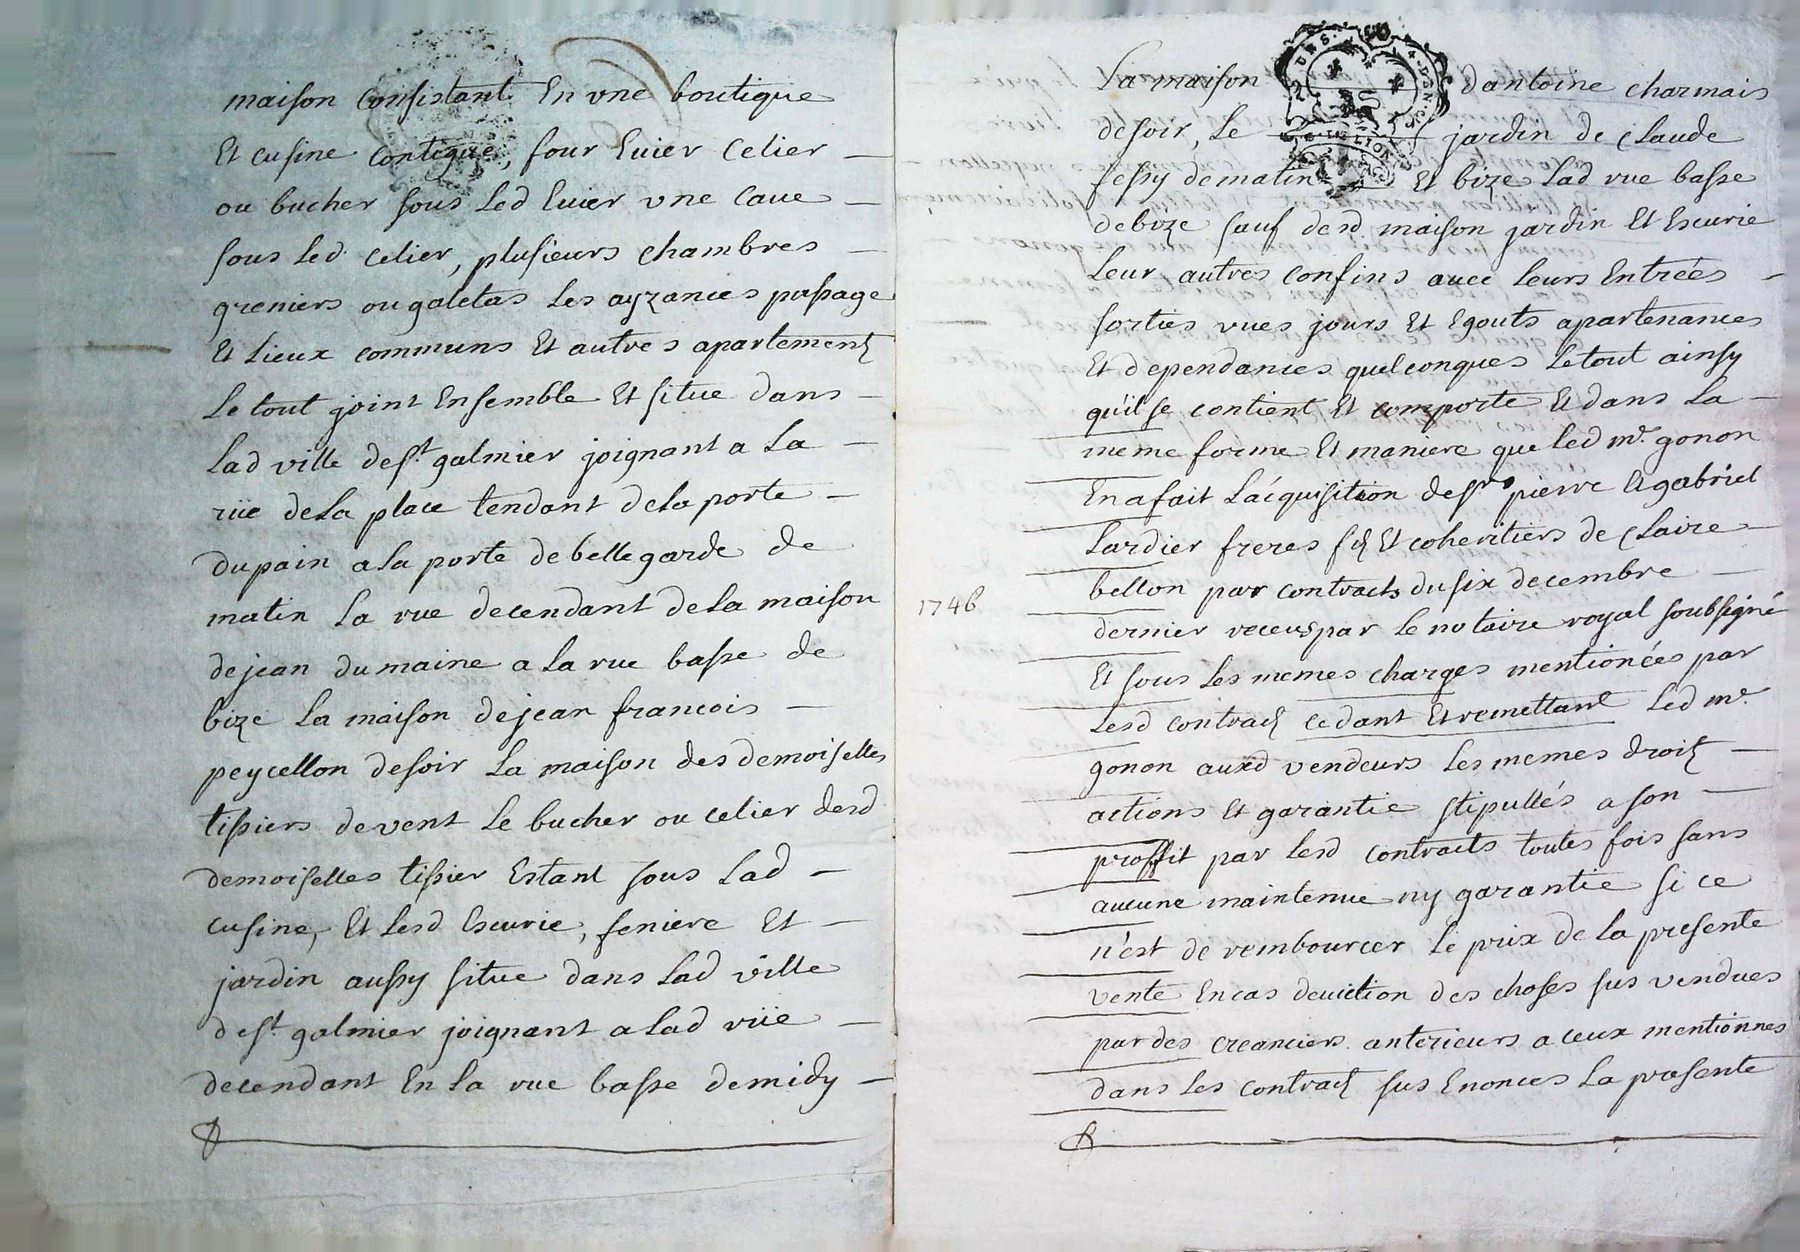 maison Consistant En vne boutique
Et cusine Contigue, four Euier Celier
ou bucher sous Led Euier vne Caue
sous Led Celier, plusieurs chambres
greniers ou galetas Les ayzances passage
Et Lieux communs Et autres apartements
Le tout joint Ensemble Et situe dans
Lad ville de st galmier joignant a La
rüe de La place tendant de la porte
du pain a la porte de bellegarde de
matin La rue decendant de La maison
de jean dumaine a la rue basse de
bize La maison de jean francois
peycellon de soir La maison des demoiselles
tissiers de vent Le bucher ou celier desd
demoiselles tissier Estant sous Lad
cusine, Et Lesd Escurie, feniere Et
jardin aussy situe dans Lad ville
de st galmier joignant a Lad rüe
decendant En La rue basse de midy
La maison d'antoine charmais
de soir, Le jardin de Claude
fessy de matin Et bize Lad rue basse
de bize sauf desd maison jardin Et Escurie
Leur autres confins auec Leurs Entrées
sorties vues jours Et Egouts apartenances
Et dependances quelconques Le tout ainsy
qu'il se contient Et comporte Et dans La
meme forme Et maniere que Led me. gonon
En a fait L'acquisition de srs pierre Et gabriel
Lardier freres fils Et coheritiers de Claire
bellon par contracts du six decembre
1746
dernier receus par Le notaire royal soubsigné
Et sous Les memes charges mentionées par
Lesd contracts cedant Et remettant Led me.
gonon auxd vendeurs Les memes droits
actions Et garantie stipullés a son
proffit par Lesd contracts toutes fois sans
aucune maintenue ny garantie si ce
n'est de rembourcer Le prix de La presente
vente En cas d'euiction des choses sus vendues
par des creanciers anterieurs a ceux mentionnes
dans Les contracts sus Enonces La presente